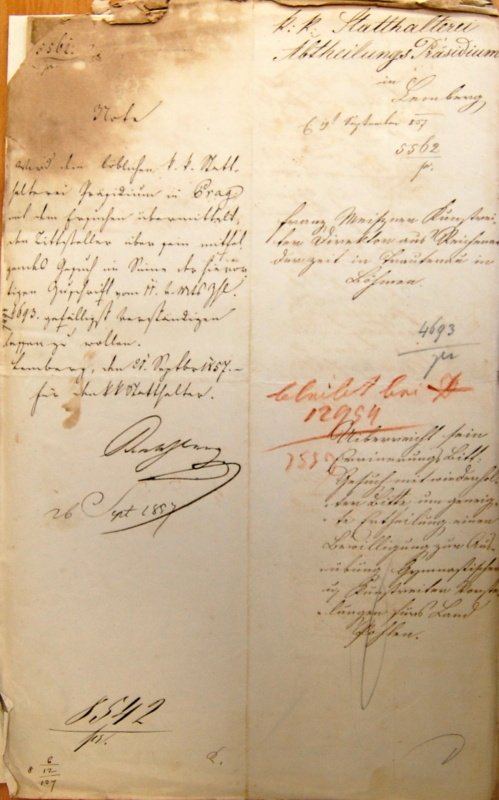 5562
pr.
Note
wird dem löblichen k. k. Statt-
halterei Präsidium in Prag
mit dem Ersuchen übermittelt,
den Bittsteller über sein mitfol-
gendes Gesuch im Sinne der hieror-
tigen Zuschrift vom 11. d. Mts Zhl.
4693. gefälligst verständigen
lassen zu wollen.
Lemberg, den 21. Septbr 1857.-
Für den k k Statthalter.
26 Sept 1857
8542
pr.
6
12
k. k. Statthalterei
Abtheilungs Präsidium
in
Lemberg
19t September 857
5562
pr.
Franz Meißner Kunstrei-
ter Direktor aus Reichenau
derzeit in Trautenau in
Böhmen.
4693
pr
bleibt bei
12954
Ueberreicht sein
Erinnerungs Bitt-
Gesuch mit wiederhol-
ter Bitte, um geneig-
te Ertheilung einer
Bewilligung zur Aus-
übung Gymnastischer
Kunstreiter Vorste-
lungen fürs Land
Pohlen.